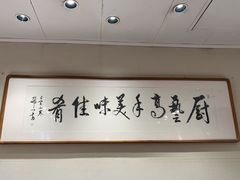 厨艺高手美味佳肴